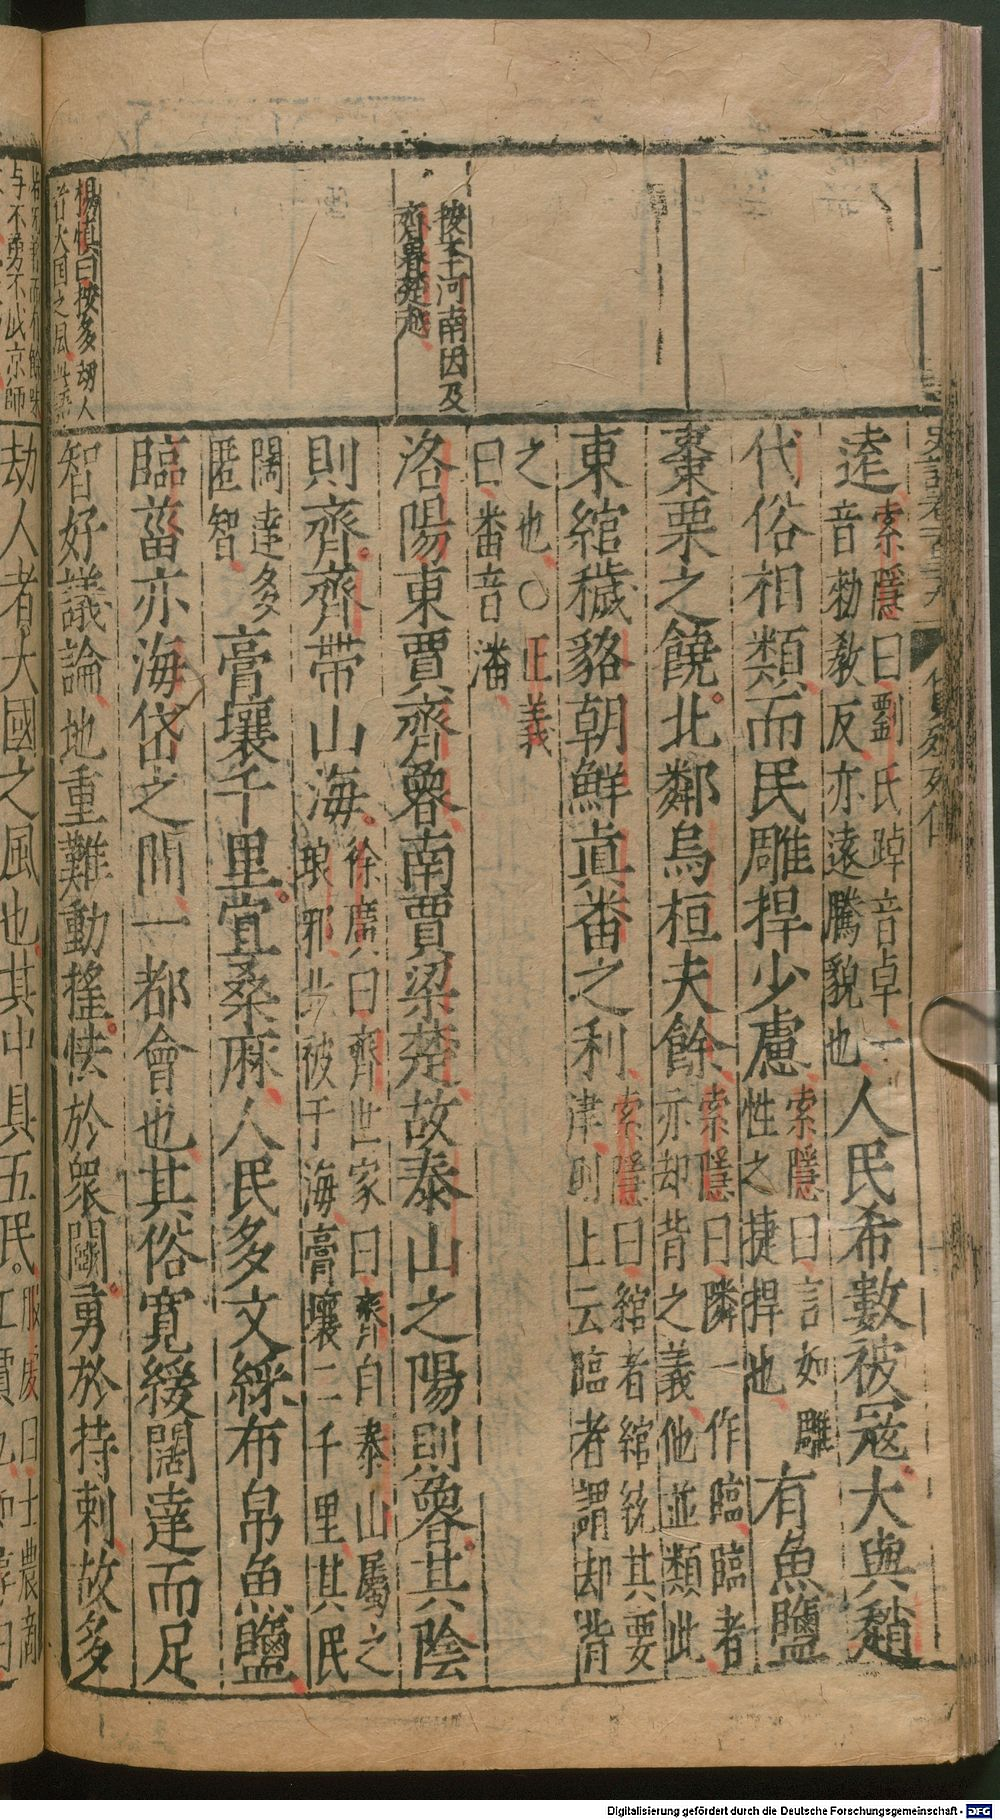 史記卷一百二十九　貨殖列傳
逴索隱曰劉氏踔音卓一音勑敎反亦遠騰貌也人民希數被寇大與趙
代俗相類而民雕捍少慮索隱曰言如雕性之捷捍也有魚鹽
棗栗之饒北鄰烏桓夫餘索隱曰隣一作臨臨者亦却背之義他並類此
東綰穢貉朝鮮眞番之利索隱曰綰者綰統其要津則上云臨者謂却背
之也○正義曰番音潘
洛陽東賈齊魯南賈梁楚故泰山之陽則魯其陰
則齊齊帶山海徐廣曰齊世家曰齊自泰山屬之琅邪北被于海膏壤二千里其民
闊達多匿智膏壤千里宜桑麻人民多文綵布帛魚鹽
臨菑亦海岱之間一都會也其俗寬緩闊達而足
智好議論地重難動搖怯於衆鬬勇於持刺故多
劫人者大國之風也其中具五民服虔曰士農商
按全河南因及
齊魯楚越
楊慎曰按多劫人
者大国之風
与不勇不此京師
Digitalisierung gefördert durch die Deutsche Forschungsgemeinschaft - DFG